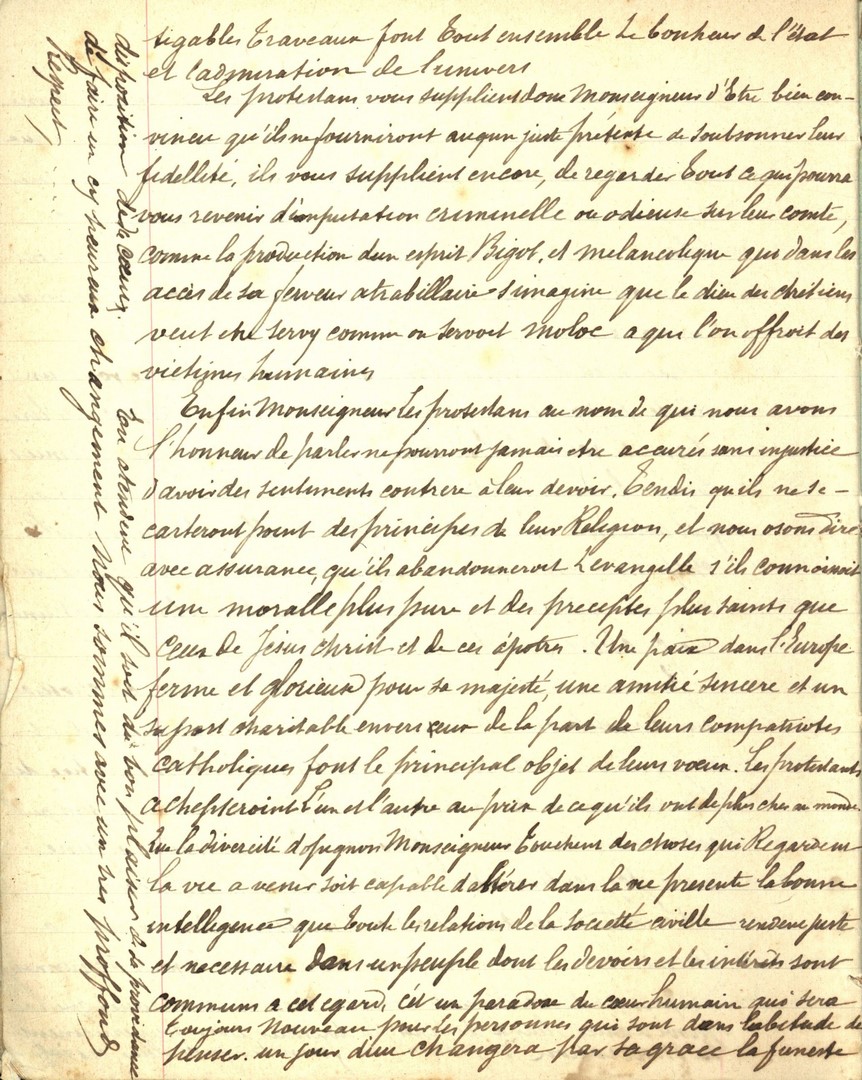 tigables travaux font tout ensemble le bonheur de l'état
et l'admiration de l'univers
Les protestans vous supplient donc Monseigneur d'Etre bien con-
vincu qu'ils ne fourniront augun juste prétexte de soubsonner leur
fidellité, ils vous supplient encore, de regarder tout ce qui pourra
vous revenir d'imputation criminelle ou odieuse sur leur comte,
comme la production dun esprit Bigot, et melancolique qui dans les
accès de sa ferveur atrabillaire s'imagine que le dieu des chrétiens
veut etre servy comme on servoit moloc a qui l'on offroit des
victimes humaines
Enfin Monseigneur Les protestans au nom de qui nous avons
l'honneur de parler ne pourront jamais etre accusés sans injustice
d'avoir des sentiments contrere à leur devoir. Tendis qu'ils ne se-
carteront point des principes de leur Religion, et nous osons dire
avec assurance, qu'ils abandonneroit L'evangelle s'ils connoissoit
une moralle plus pure et des preceptes plus saints que
ceux de Jésus christ et de ces apotres. Une paix dans l'Europe
ferme et glorieux pour sa majesté, une amitié sincere et un
suport charitable envers eux de la part de leurs compatriotes
catholiques font le principal objet de leurs voeux. Les protestants
achepteroint l'un et l'autre au prix de ce qu'ils ont de plus cher au monde.
Que la divercité d'opugnon Monseigneur touchent des choses qui Regardent
la vie a venir soit capable daltérer dans la vie presente la bonne
intelligence que toute les relations de la societté civille rendent juste
et necessaire dans un peuple dont les devoirs et les intérêts sont
communs a cet egard, c'ét un paradoxe du coeur humain qui sera
toujours nouveau pour les personnes qui sont dans labitude de
penser. un jour dieu changera par sa grace la funeste
disposition de ce coeur. En atendent qu'il soit du bon plaisir de sa providance
de faire un cy heureux changement nous sommes avec un tres proffond
Respect,